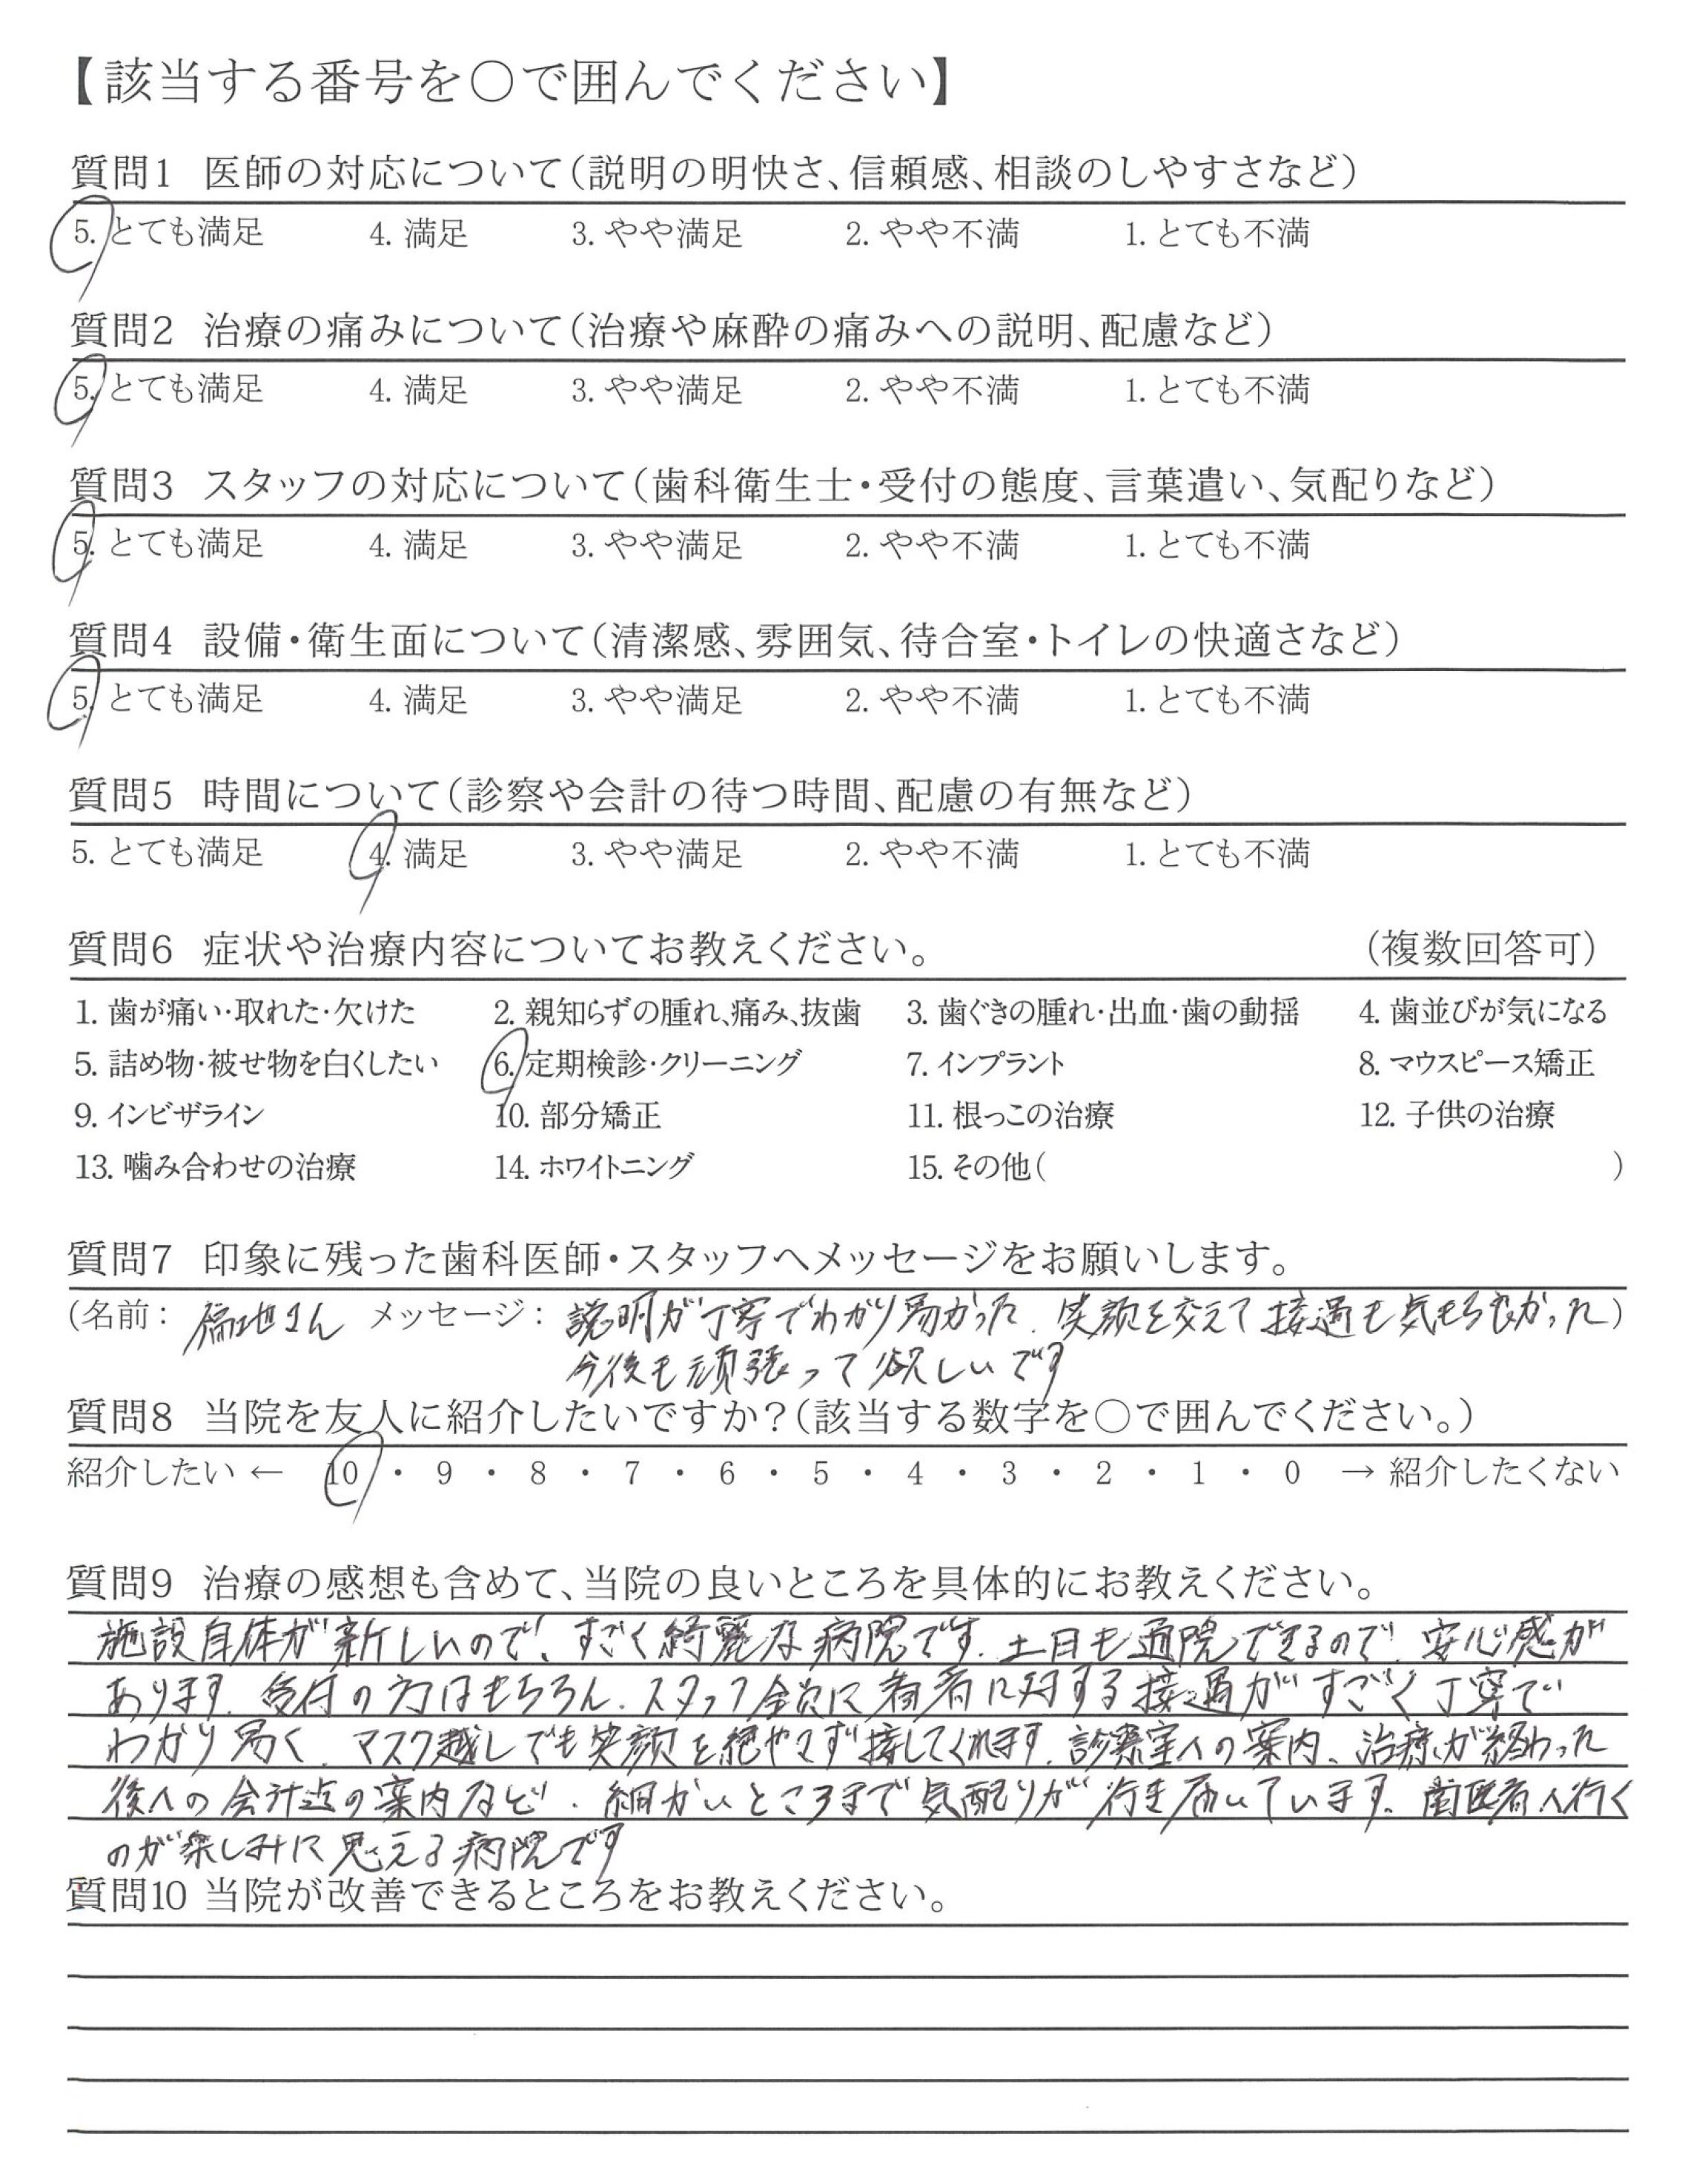 【該当する番号を○で囲んでください】
質問1 医師の対応について（説明の明快さ、信頼感、相談のしやすさなど）
5. とても満足 4. 満足 3. やや満足 2. やや不満 1. とても不満
質問2 治療の痛みについて（治療や麻酔の痛みへの説明、配慮など）
5. とても満足 4. 満足 3. やや満足 2. やや不満 1. とても不満
質問3 スタッフの対応について（歯科衛生士・受付の態度、言葉遣い、気配りなど）
5. とても満足 4. 満足 3. やや満足 2. やや不満 1. とても不満
質問4 設備・衛生面について（清潔感、雰囲気、待合室・トイレの快適さなど）
5. とても満足 4. 満足 3. やや満足 2. やや不満 1. とても不満
質問5 時間について（診察や会計の待つ時間、配慮の有無など）
5. とても満足 4. 満足 3. やや満足 2. やや不満 1. とても不満
質問6 症状や治療内容についてお教えください。 （複数回答可）
1. 歯が痛い・取れた・欠けた 2. 親知らずの腫れ、痛み、抜歯 3. 歯ぐきの腫れ・出血・歯の動揺 4. 歯並びが気になる
5. 詰め物・被せ物を白くしたい 6. 定期検診・クリーニング 7. インプラント 8. マウスピース矯正
9. インビザライン 10. 部分矯正 11. 根っこの治療 12. 子供の治療
13. 噛み合わせの治療 14. ホワイトニング 15. その他（ ）
質問7 印象に残った歯科医師・スタッフへメッセージをお願いします。
（名前： 福地さん メッセージ： 説明が丁寧でわかり易かった、笑顔を交えて接遇も気もち良かった）
今後も頑張って欲しいです
質問8 当院を友人に紹介したいですか？（該当する数字を○で囲んでください。）
紹介したい ← 10 ・ 9 ・ 8 ・ 7 ・ 6 ・ 5 ・ 4 ・ 3 ・ 2 ・ 1 ・ 0 → 紹介したくない
質問9 治療の感想も含めて、当院の良いところを具体的にお教えください。
施設自体が新しいので、すごく綺麗な病院です。土日も通院できるので、安心感が
あります。受付の方はもちろん、スタッフ全員に患者に対する接遇がすごく丁寧で
わかり易く、マスク越しでも笑顔を絶やさず接してくれます。診察室への案内、治療が終わった
後への会計迄の案内など、細かいところまで気配りが行き届いています。歯医者へ行く
のが楽しみに思える病院です
質問10 当院が改善できるところをお教えください。